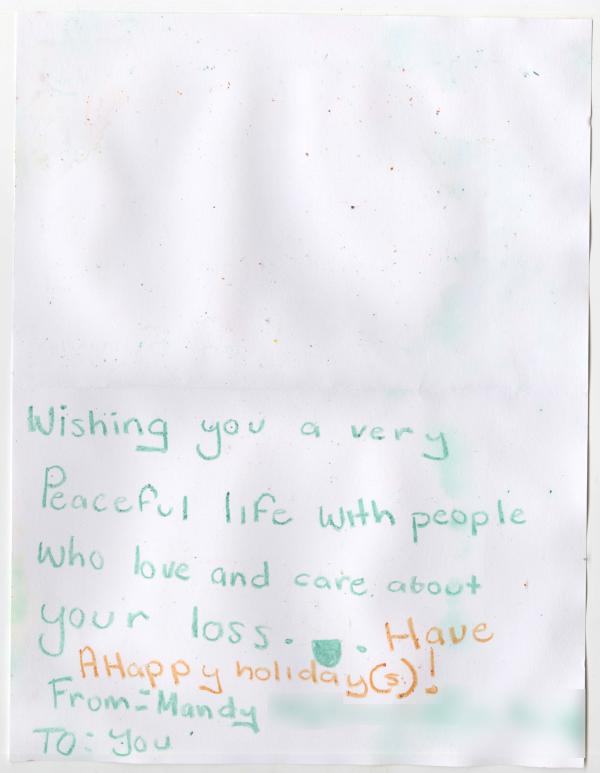 Wishing you a very
Peaceful life with people
who love and care about
your loss. . Have
A Happy holiday(s)!
From:-Mandy
TO: You